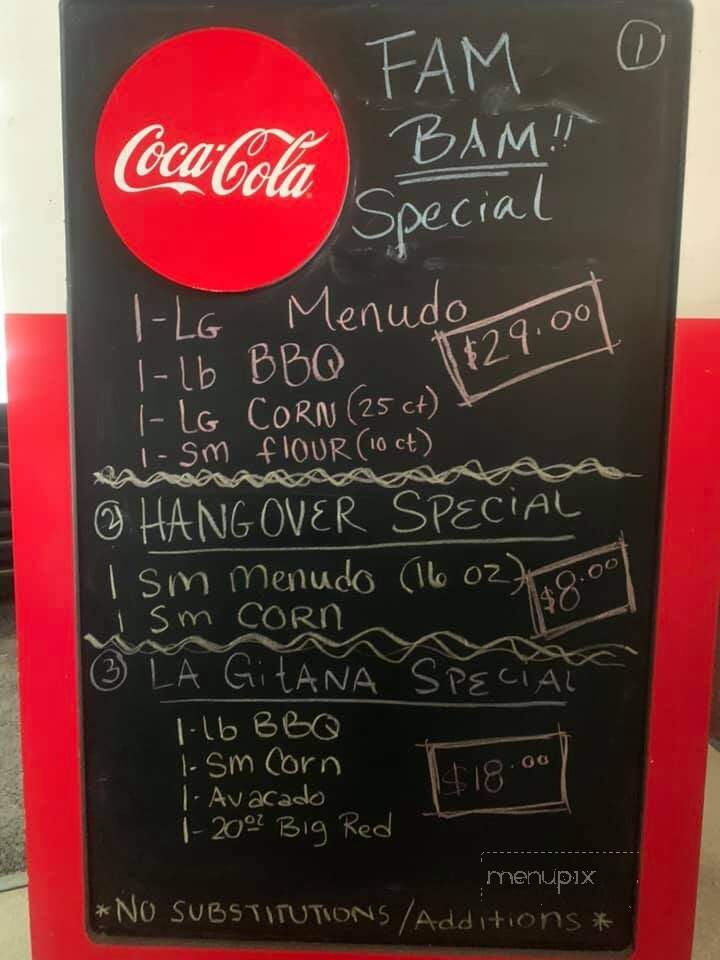 Coca-Cola
FAM
BAM!!
Special
①
1-LG Menudo
$29.00
1-lb BBQ
1-LG CORN (25 ct)
1-Sm flOUR (10 ct)
② HANGOVER SPECIAL
1 Sm Menudo (16 oz)
$8.00
1 Sm CORN
③ LA GitANA SPECIAL
1-lb BBQ
1-Sm Corn
$18.00
1-Avacado
1-20oz Big Red
menupix
*NO SUBSTITUTIONS/Additions*